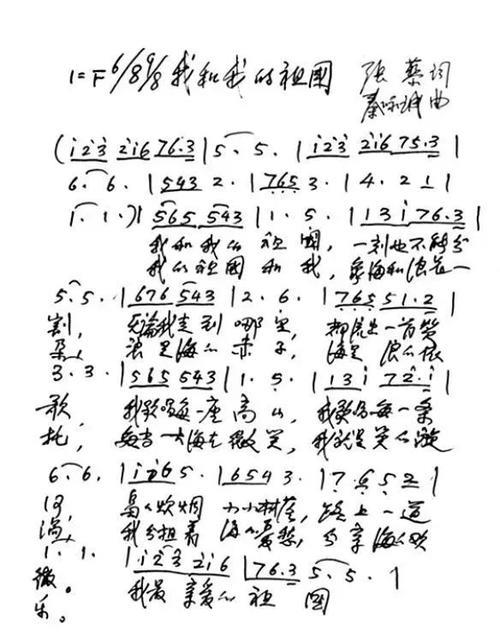 1=F 6/8 9/8 我和我的祖国 张藜词
秦咏诚曲
(i̇2̇3̇ 2̇i̇6 76.3 | 5. 5. | i̇2̇3̇ 2̇i̇6 75.3 |
6. 6. | 543 2. | 765 3. | 4. 2 1 |
1. 1.) | 565 543 | 1. 5. | 1 3 i̇ 76.3 |
我和我的祖国,一刻也不能分
我的祖国和我,象海和浪花一
5. 5. | 676 543 | 2. 6. | 765 51.2 |
割,无论我走到哪里,都流出一首赞
朵,浪是海的赤子,海是浪的依
3. 3. | 565 543 | 1. 5. | 1 3 i̇ 72̇.i̇ |
歌,我歌唱每一座高山,我歌唱每一条
托,每当大海在微笑,我就是笑的漩
6. 6. | i̇765. | 6543. | 7.652 |
河,袅袅炊烟 小小村落,路上一道
涡,我分担着 海的忧愁,分享海的欢
1. 1. | i̇2̇3̇ 2̇i̇6 | 76.3 5. 5. |
辙。我最亲爱的祖国
乐。